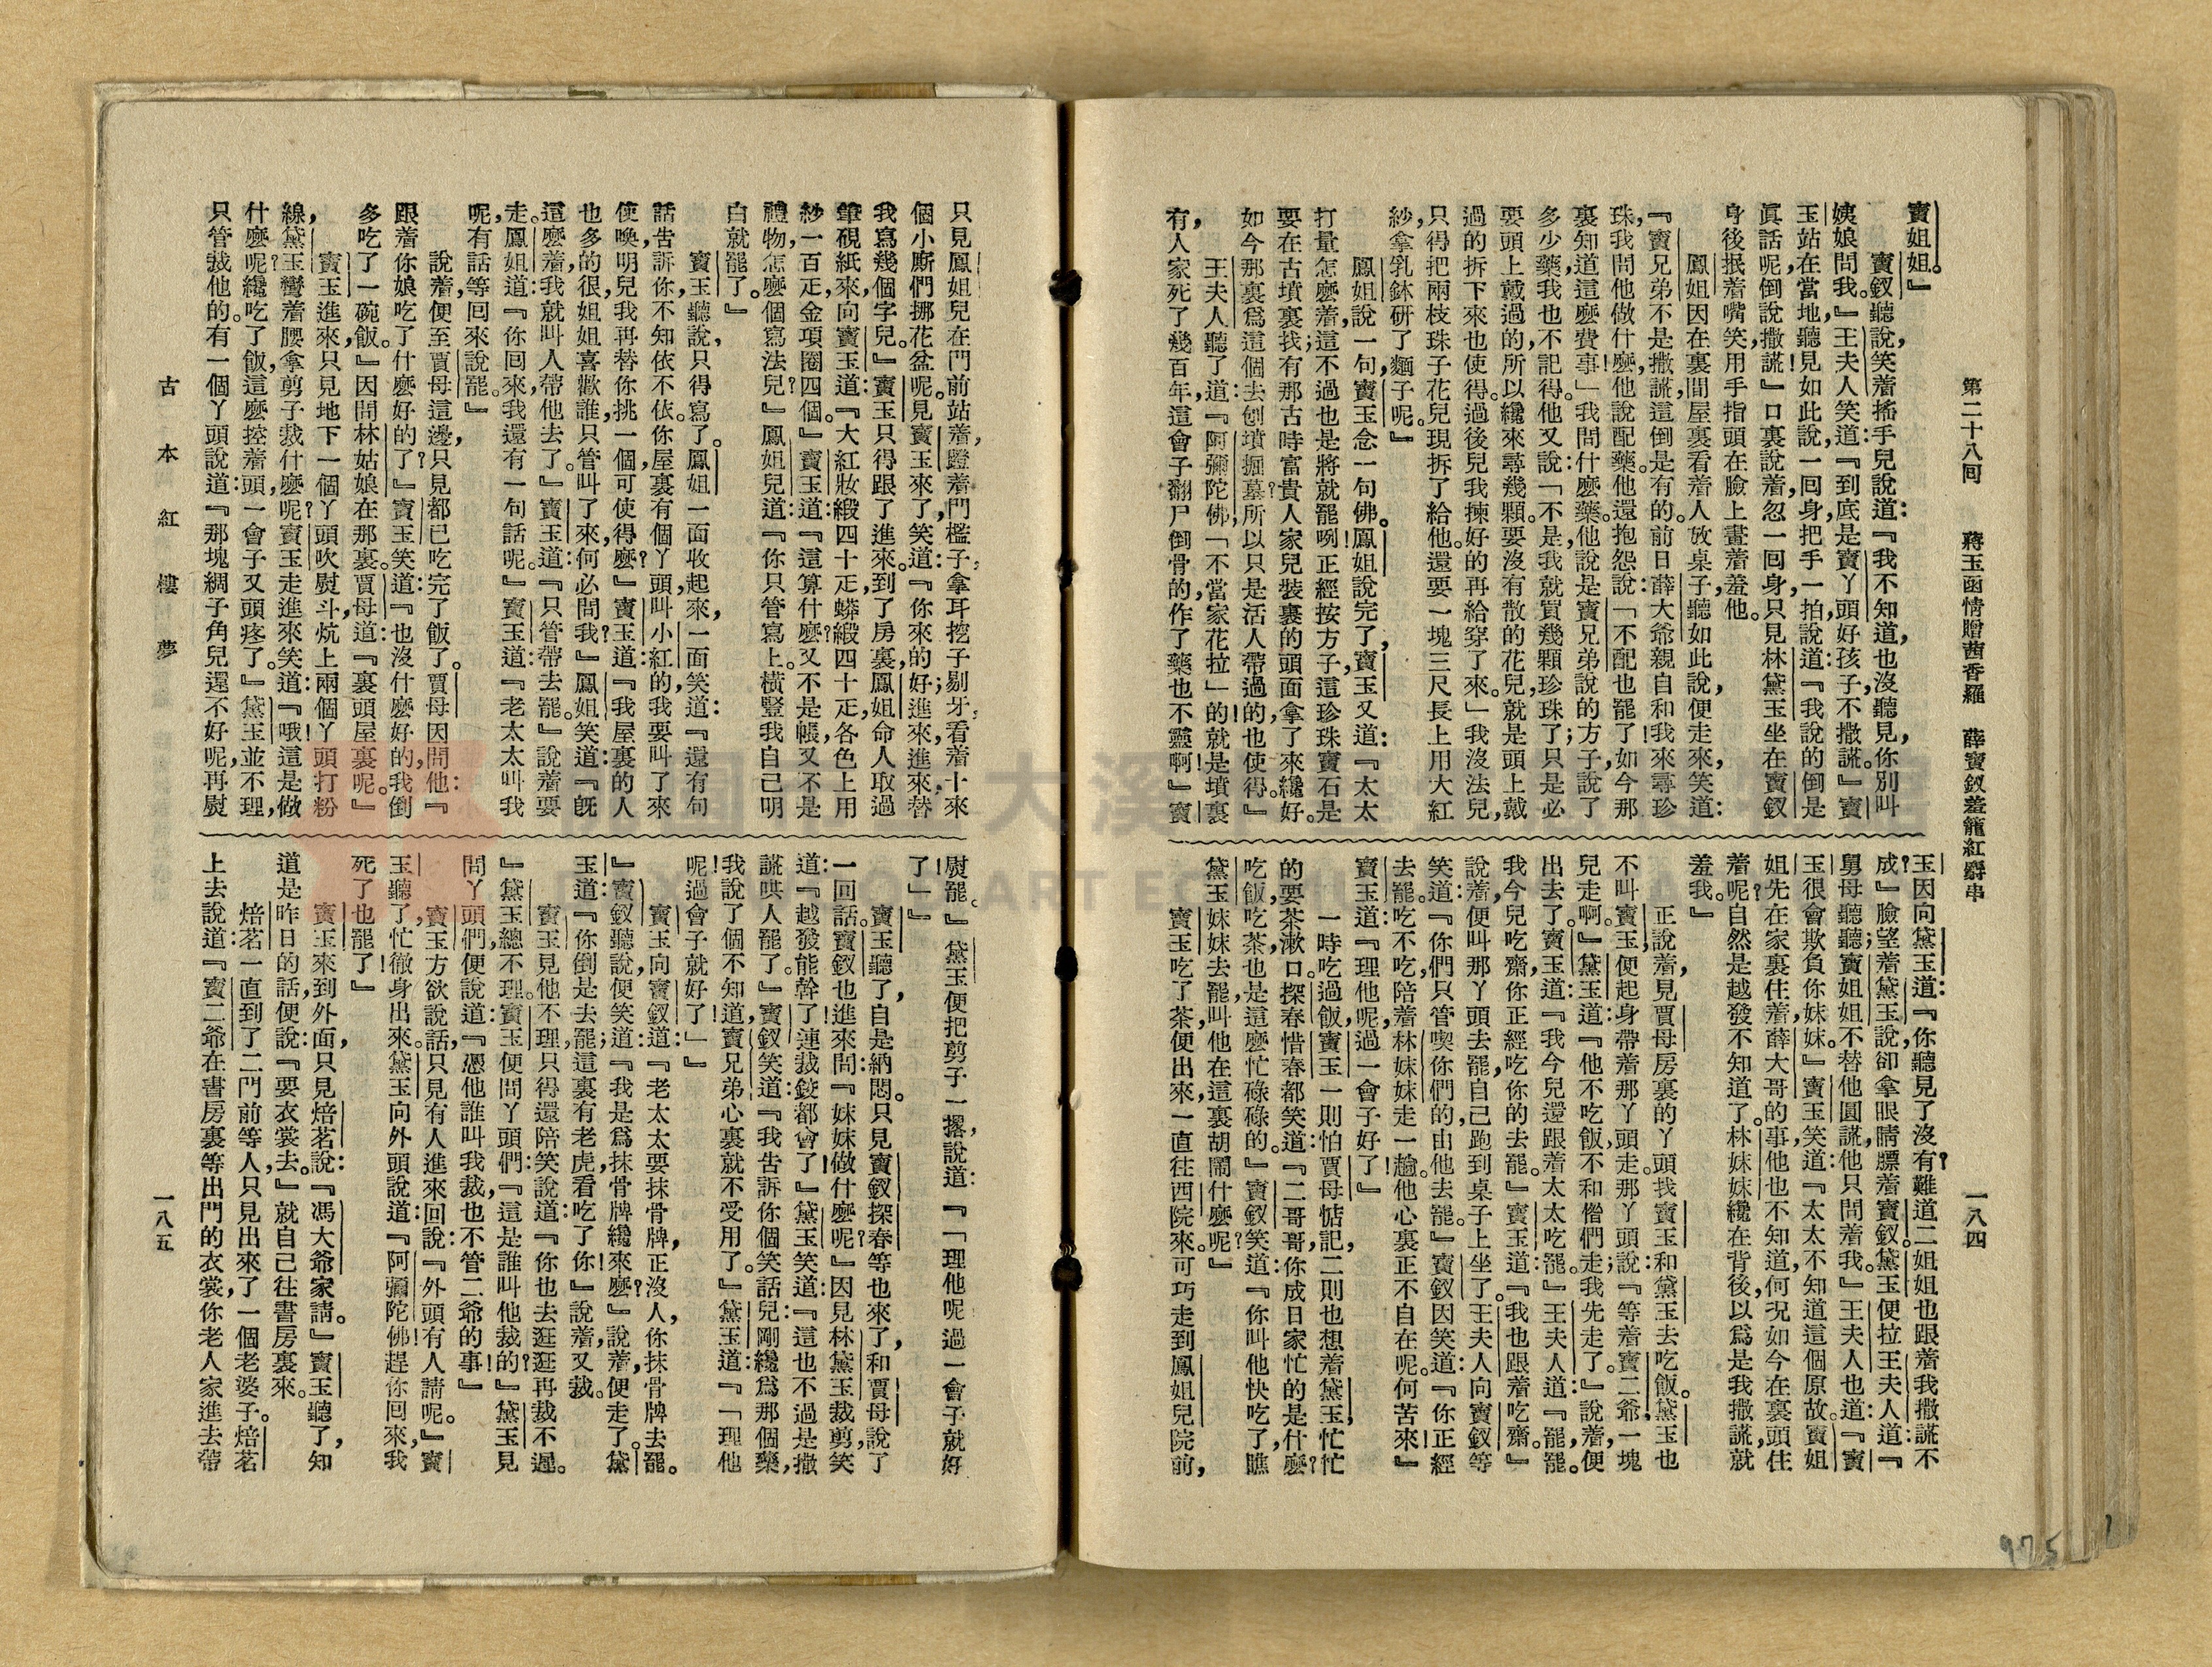 第二十八回　蔣玉函情贈茜香羅　薛寶釵羞籠紅麝串
一八四
寶姐姐。』
寶釵聽說，笑着搖手兒說道：『我不知道，也沒聽見，你別叫
姨娘問我。』王夫人笑道：『到底是寶丫頭好孩子，不撒謊。』寶
玉站在當地，聽見如此說，一回身，把手一拍，說道：『我說的倒是
眞話呢，倒說撒謊』口裏說着，忽一回身，只見林黛玉坐在寶釵
身後抿着嘴笑，用手指頭在臉上畫着羞他。
鳳姐因在裏間屋裏看着人放桌子，聽如此說，便走來，笑道：
『寶兄弟不是撒謊，這倒是有的。前日薛大爺親自和我來尋珍
珠，我問他做什麼，他說配藥。他還抱怨說：「不配也罷了，如今那
裏知道這麼費事！」我問什麼藥，他說是寶兄弟說的方子，說了
多少藥，我也不記得。他又說：「不是，我就買幾顆珍珠了；只是必
要頭上戴過的，所以纔來尋幾顆。要沒有散的花兒，就是頭上戴
過的拆下來也使得。過後兒我揀好的再給穿了來。」我沒法兒，
只得把兩枝珠子花兒現拆了給他。還要一塊三尺長上用大紅
紗，拿乳鉢研了麵子呢。』
鳳姐說一句，寶玉念一句佛。鳳姐說完了，寶玉又道：『太太
打量怎麼着，這不過也是將就罷咧！正經按方子，這珍珠寶石是
要在古墳裏找；有那古時富貴人家兒裝裏的頭面拿了來纔好。
如今那裏爲這個去刨墳掘墓？所以只是活人帶過的，也使得。』
王夫人聽了道：『阿彌陀佛，「不當家花拉」的！就是墳裏
有，人家死了幾百年，這會子翻尸倒骨的，作了藥也不靈啊！』寶
玉因向黛玉道：『你聽見了沒有？難道二姐姐也跟着我撒謊不
成？』臉望着黛玉說，卻拿眼睛瞟着寶釵。黛玉便拉王夫人道：『
舅母聽聽；寶姐姐不替他圓謊，他只問着我。』王夫人也道：『寶
玉很會欺負你妹妹。』寶玉笑道：『太太不知道這個原故。寶姐
姐先在家裏住着，薛大哥的事，他也不知道，何況如今在裏頭住
着呢？自然是越發不知道了。林妹妹纔在背後，以爲是我撒謊，就
羞我。』
正說着，見賈母房裏的丫頭找寶玉和黛玉去吃飯。黛玉也
不叫寶玉，便起身帶着那丫頭走。那丫頭說：『等着寶二爺，一塊
兒走啊。』黛玉道：『他不吃飯，不和偺們走；我先走了。』說着，便
出去了。寶玉道：『我今兒還跟着太太吃罷。』王夫人道：『罷罷。
我今兒吃齋，你正經吃你的去罷。』寶玉道：『我也跟着吃齋。』
說着，便叫那丫頭去罷，自己跑到桌子上坐了。王夫人向寶釵等
笑道：『你們只管喫你們的，由他去罷。』寶釵因笑道：『你正經
去罷。吃不吃，陪着林妹妹走一趟。他心裏正不自在呢。何苦來！』
寶玉道：『理他呢，過一會子好了！』
一時吃過飯，寶玉一則怕賈母惦記，二則也想着黛玉，忙忙
的要茶漱口。探春惜春都笑道：『二哥哥，你成日家忙的是什麼？
吃飯吃茶，也是這麼忙碌碌的。』寶釵笑道：『你叫他快吃了，瞧
黛玉妹妹去罷，叫他在這裏胡鬧什麼呢？』
寶玉吃了茶，便出來，一直往西院來。可巧走到鳳姐兒院前，
只見鳳姐兒在門前站着，蹬着門檻子，拿耳挖子剔牙，看着十來
個小廝們挪花盆呢。見寶玉來了，笑道：『你來的好；進來，進來，替
我寫幾個字兒。』寶玉只得跟了進來。到了房裏，鳳姐命人取過
筆硯紙來，向寶玉道：『大紅妝緞四十疋，蟒緞四十疋，各色上用
紗一百疋，金項圈四個。』寶玉道：『這算什麼？又不是帳，又不是
禮物，怎麼個寫法兒？』鳳姐兒道：『你只管寫上。橫豎我自己明
白就罷了。』
寶玉聽說，只得寫了。鳳姐一面收起來，一面笑道：『還有句
話告訴你，不知依不依。你屋裏有個丫頭，叫小紅的，我要叫了來
使喚，明兒我再替你挑一個，可使得麼？』寶玉道：『我屋裏的人
也多的很，姐姐喜歡誰，只管叫了來，何必問我？』鳳姐笑道：『旣
這麼着，我就叫人帶他去了。』寶玉道：『只管帶去罷。』說着要
走。鳳姐道：『你回來，我還有一句話呢。』寶玉道：『老太太叫我
呢，有話等回來說罷。』
說着，便至賈母這邊，只見都已吃完了飯了。賈母因問他：『
跟着你娘吃了什麼好的了？』寶玉笑道：『也沒什麼好的，我倒
多吃了一碗飯。』因問林姑娘在那裏。賈母道：『裏頭屋裏呢。』
寶玉進來，只見地下一個丫頭吹熨斗，炕上兩個丫頭打粉
線，黛玉彎着腰拿剪子裁什麼呢？寶玉走進來笑道：『哦！這是做
什麼呢？纔吃了飯，這麼控着頭，一會子又頭疼了。』黛玉並不理，
只管裁他的。有一個丫頭說道：『那塊綢子角兒還不好呢，再熨
熨罷。』黛玉便把剪子一撂，說道：『「理他呢！過一會子就好
了」』
寶玉聽了，自是納悶。只見寶釵探春等也來了，和賈母說了
一回話。寶釵也進來問：『妹妹做什麼呢？』因見林黛玉裁剪，笑
道：『越發能幹了！連裁鉸都會了！』黛玉笑道：『這也不過是撒
謊哄人罷了。』寶釵笑道：『我告訴你個笑話兒：剛纔爲那個藥，
我說了個不知道，寶兄弟心裏就不受用了。』黛玉道：『「理他
呢！過會子就好了」』
寶玉向寶釵道：『老太太要抹骨牌，正沒人，你抹骨牌去罷。
』寶釵聽說，便笑道：『我是爲抹骨牌纔來麼？』說着，便走了。黛
玉道：『你倒是去罷；這裏有老虎，看吃了你！』說着，又裁。
寶玉見他不理，只得還陪笑說道：『你也去逛逛再裁不遲。
』黛玉總不理。寶玉便問丫頭們：『這是誰叫他裁的？』黛玉見
問丫頭們，便說道：『憑他誰叫我裁，也不管二爺的事！』
寶玉方欲說話，只見有人進來回說：『外頭有人請呢。』寶
玉聽了，忙徹身出來。黛玉向外頭說道：『阿彌陀佛！趕你回來，我
死了也罷了！』
寶玉來到外面，只見焙茗說：『馮大爺家請。』寶玉聽了，知
道是昨日的話，便說：『要衣裳去。』就自己往書房裏來。
焙茗一直到了二門前等人，只見出來了一個老婆子。焙茗
上去說道：『寶二爺在書房裏等出門的衣裳，你老人家進去帶
古本紅樓夢
一八五
975